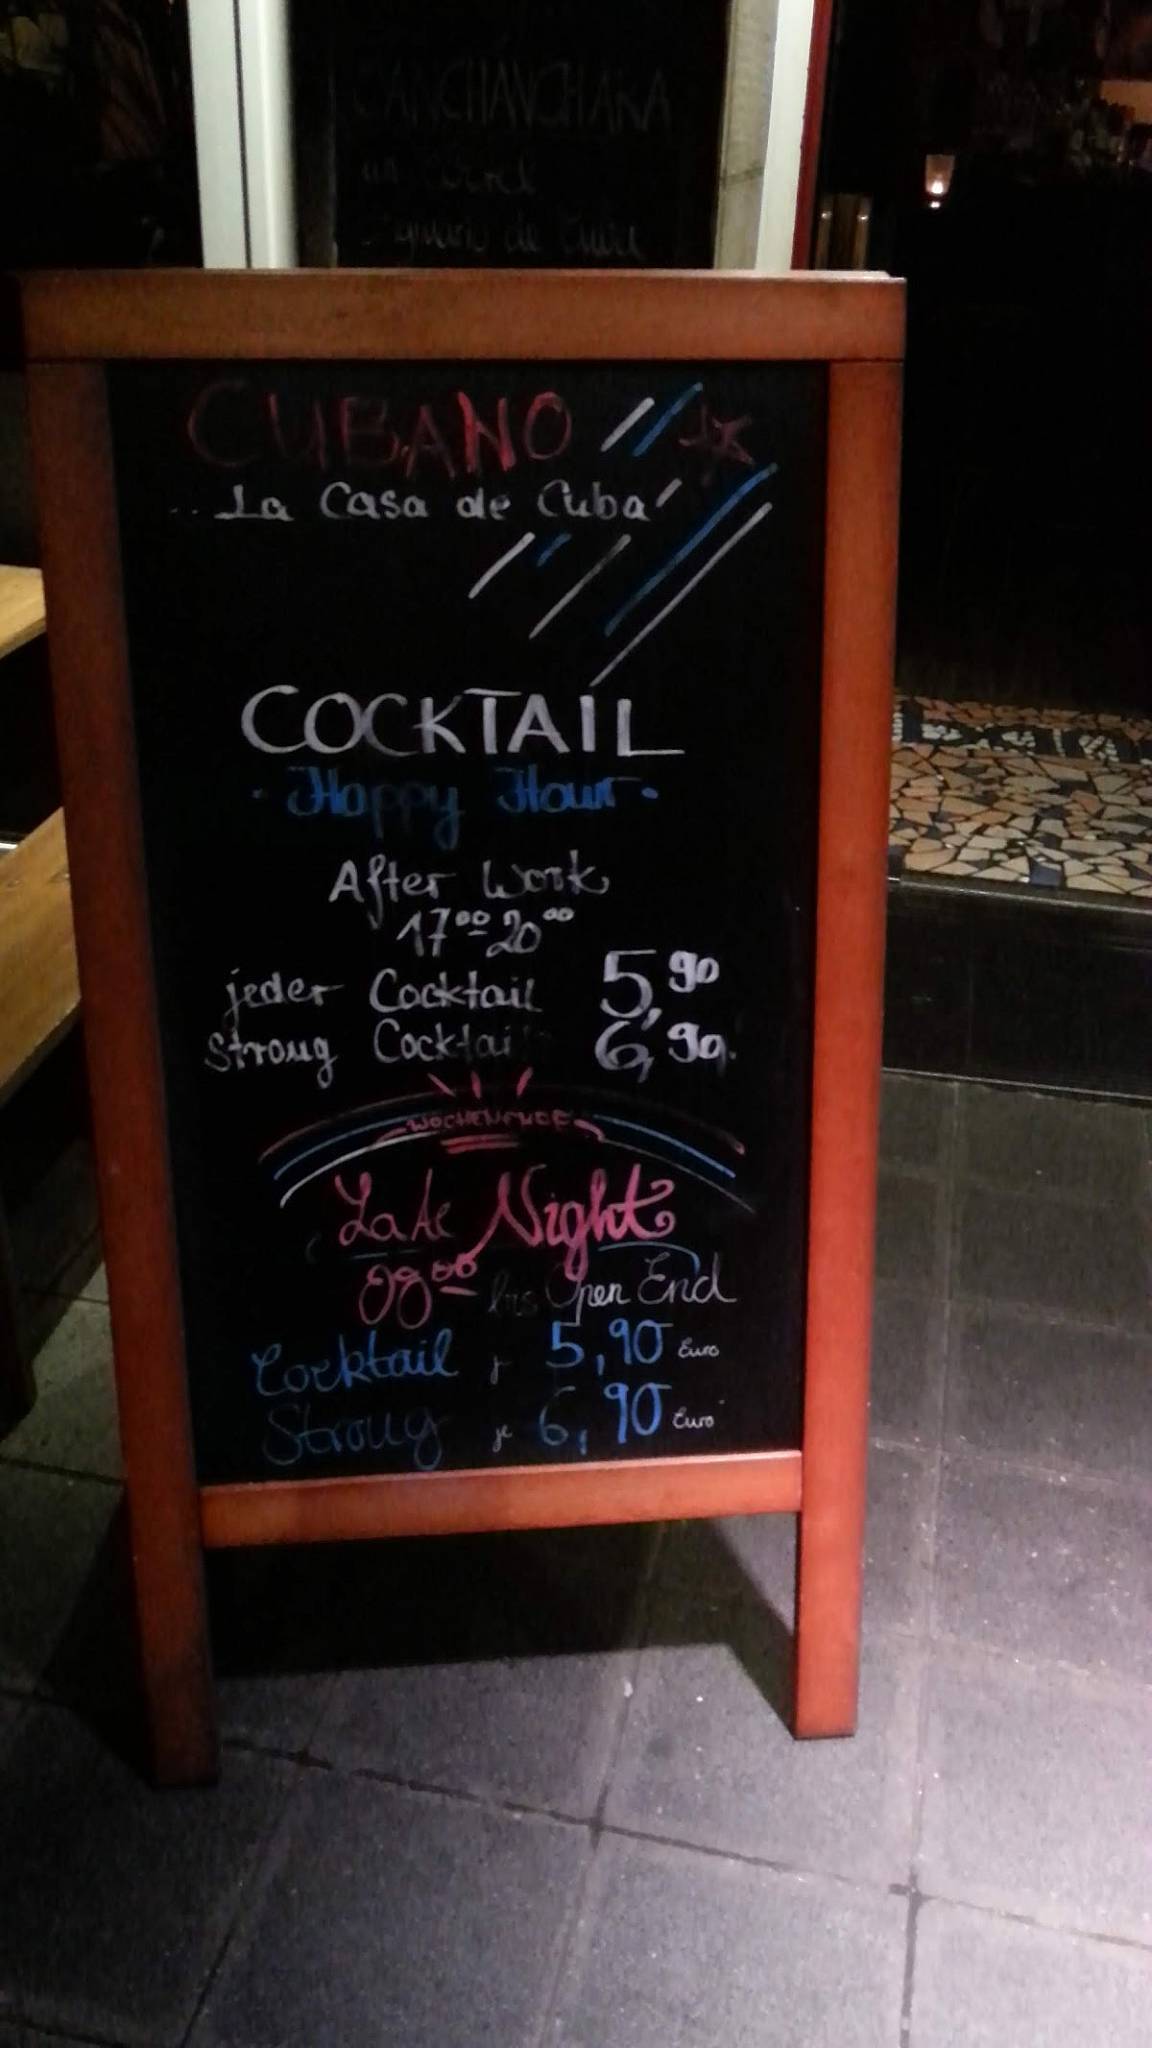 CANCHANCHARA
de Cuba
CUBANO
La Casa de Cuba
COCKTAIL
Happy Hour
After Work
17⁰⁰ 20⁰⁰
jeder Cocktail 5,90
Strong Cocktail 6,90.
WOCHENENDE
Late Night
00⁰⁰ bis Open End
Cocktail je 5,90 Euro
Strong je 6,90 Euro